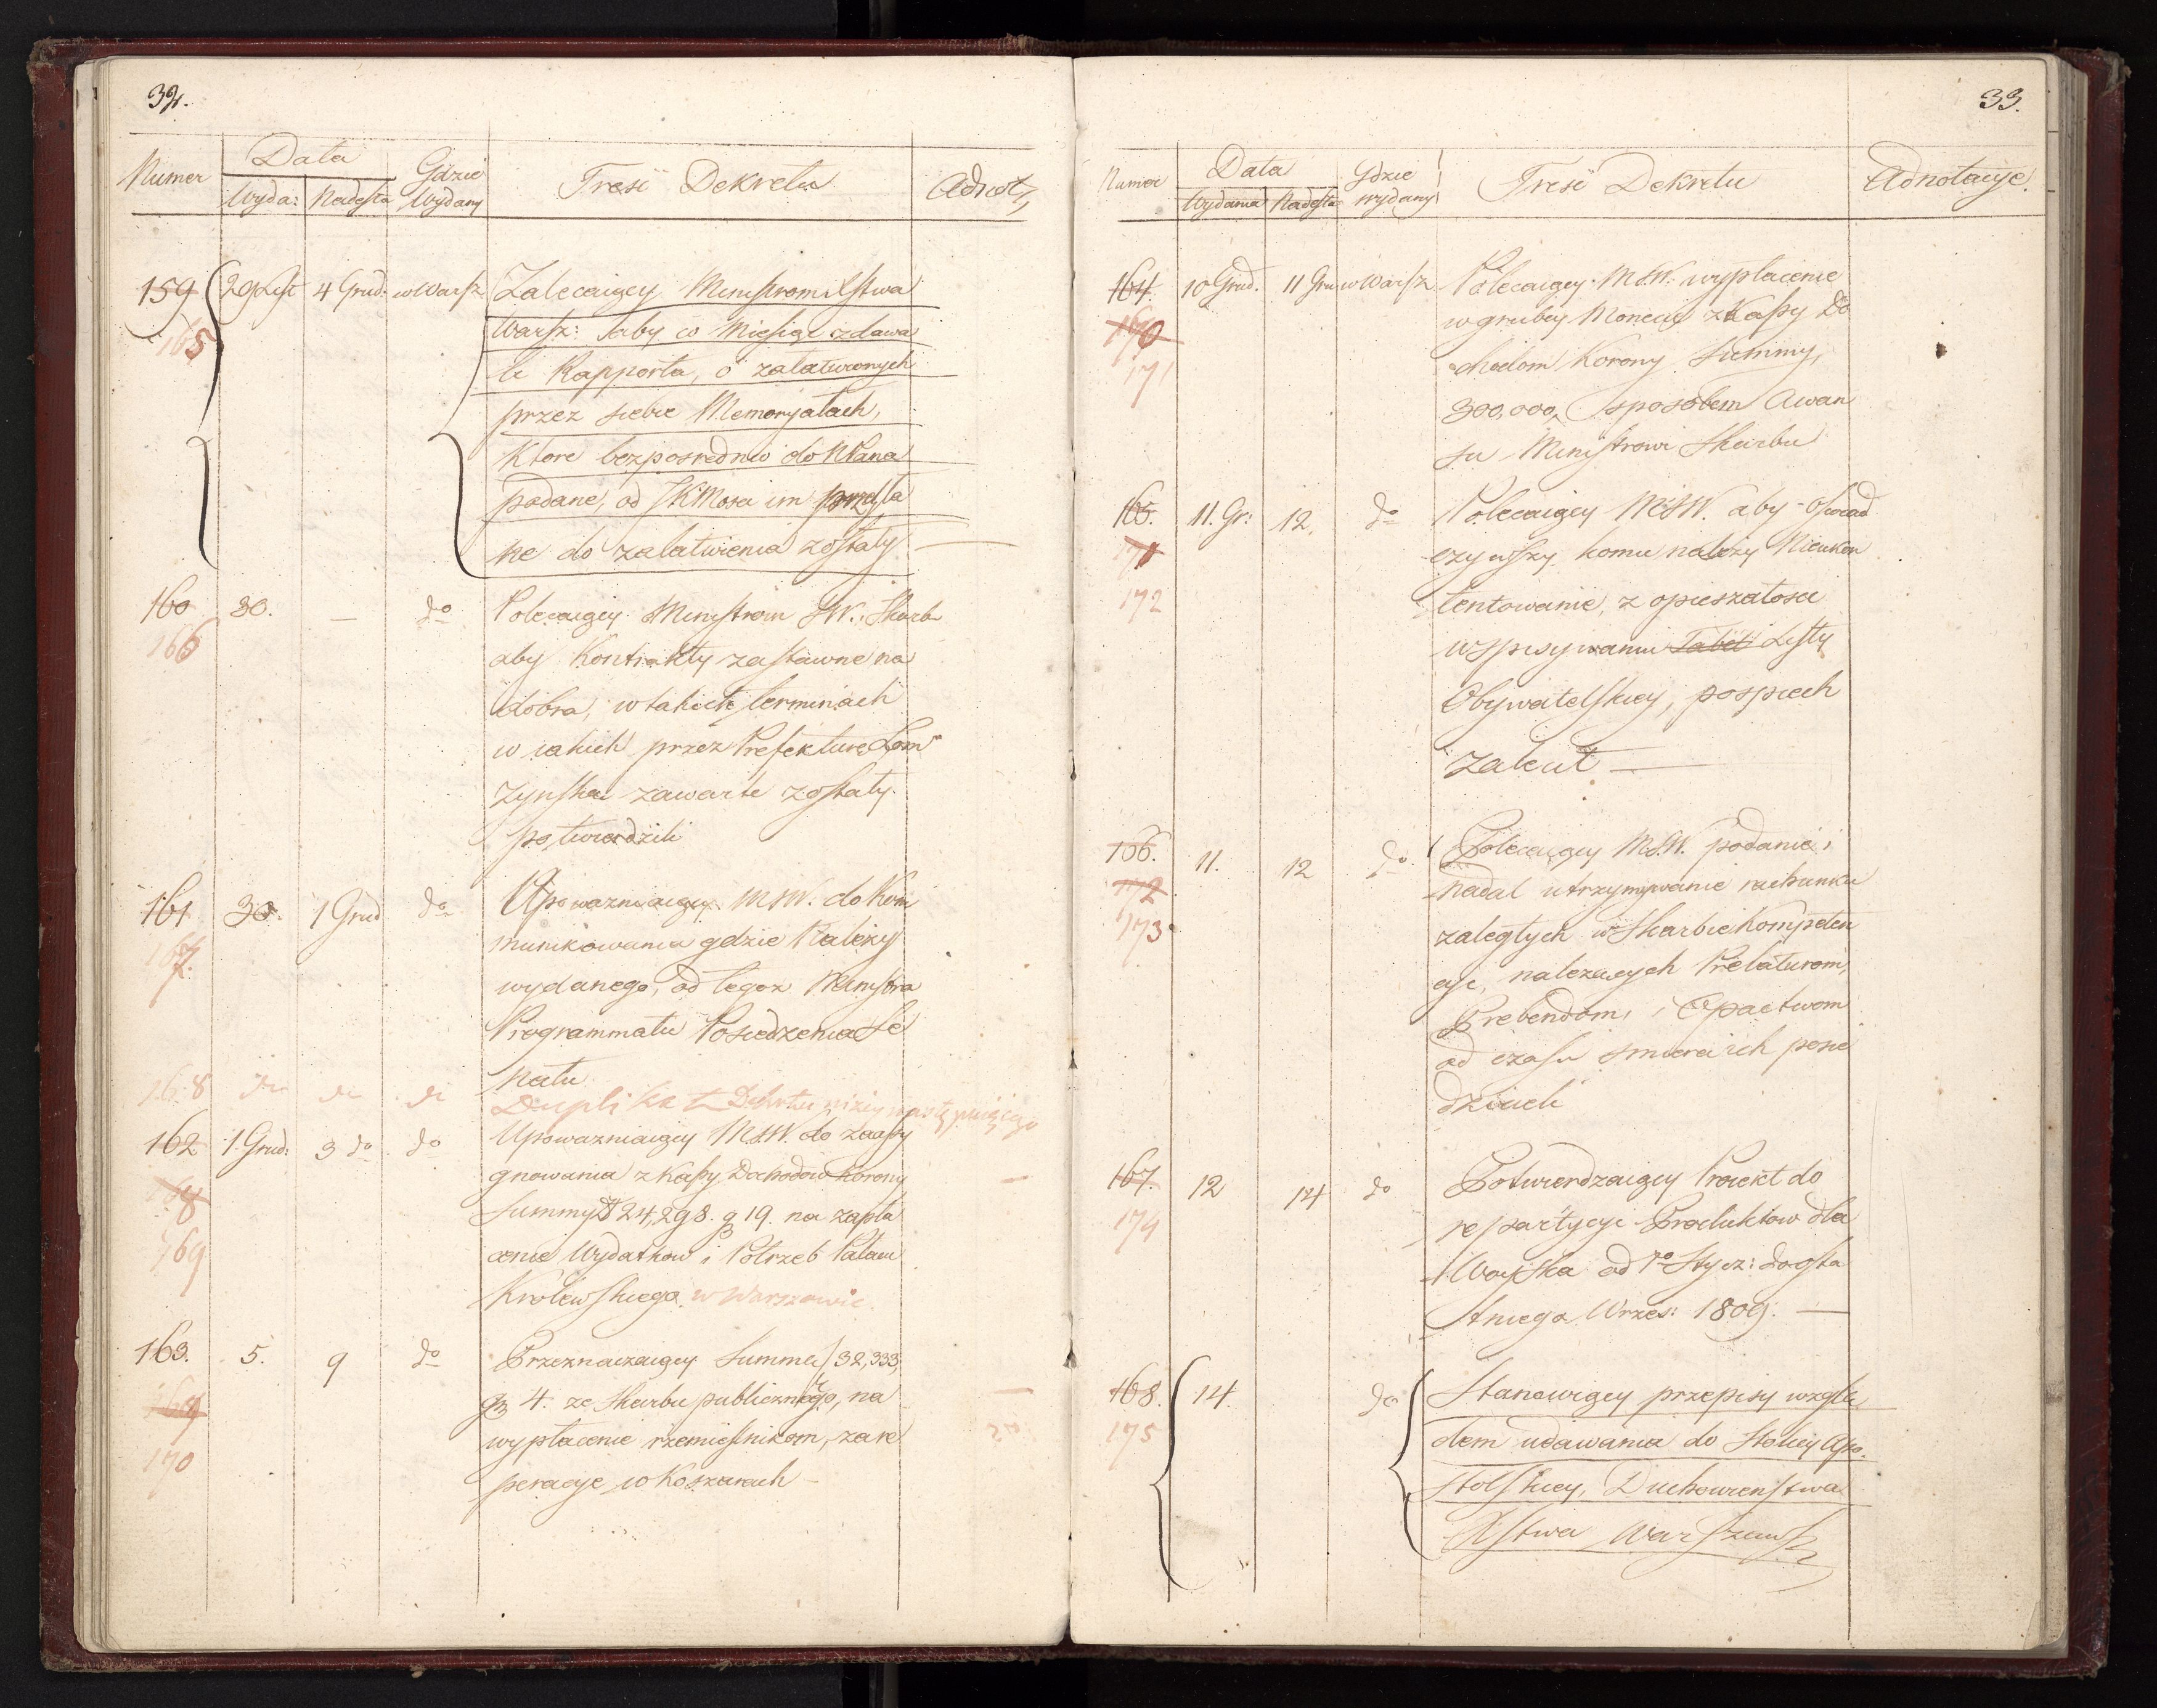 32.
Numer Data Gdzie Wydany Treść Dekretu Adnot:
Wyda: Nadesła
159 29 List 4 Grud: w Warsz Zalecaiący Ministrom Xstwa
165
Warsz: aby co Miesiąc zdawa
li Rapporta, o załatwionych
przez siebie Memoryałach,
Które bezposrednio do N Pana
podane, od JKMosci im przesła
ne do załatwienia zostały
160 30. — do Polecaiący Ministrom SW. i Skarbu
166
aby Kontrakty zastawne na
dobra, w takich terminach
w iakich przez Prefekturę Łom
żyńską zawarte zostały
potwierdzili
161 30. 1 Grud do Upoważniaiący MSW. do Kom
167.
munikowania gdzie Należy
wydanego, od tegoż Ministra
Programmatu Posiedzenia Se
natu
168 do do do Duplikat Dekretu niżey następuiącego
162 1 Grud: 3 do do Upoważniaiący MSW. do zaasy
168
gnowania z Kassy Dochodów Korony
Summy 24,298. g 19. na zapła
169
cenie Wydatków i Potrzeb Pałacu
Królewskiego w Warszawie.
163. 5. 9 do Przeznaczaiący Summę 32,333,
169
g 4. ze Skarbu publicznego, na
wypłacenie rzemieślnikom, za re
170
peracye w Koszarach —
33.
Numer Data Gdzie wydany Treść Dekretu Adnotacye.
Wydania Nadesła:
164. 10 Grud. 11 Gru w Warsz Polecaiący MSW. wypłacenie
170
w grubey Monecie z Kassy Do
171
chodom Korony Summy,
300,000, sposobem Awan
su Ministrowi Skarbu
165. 11. Gr: 12. do Polecaiący MSW. aby oswiad
171
czywszy komu należy Nieukon
172
tentowanie, z opieszałosci
w spisywaniu Tabel Listy
Obywatelskiey, pospiech
zalecił —
166. 11. 12 do. Polecaiący MSW. podanie i
172
nadal utrzymywanie rachunku
173
zaległych w Skarbie Kompeten
cyi, należących Prelaturom,
Prebendom, i Opactwom
od czasu smierci ich posie
dzicieli
167. 12 14 do Potwierdzaiący Proiekt do
174
repartycyi Produktów dla
Woyska od 1o Stycz: do osta
tniego Wrzes: 1809. —
168. 14. do Stanowiący przepisy wzglę
175
dem udawania do Stolicy Apo
stolskiey, Duchowieństwa
Xstwa Warszaws: